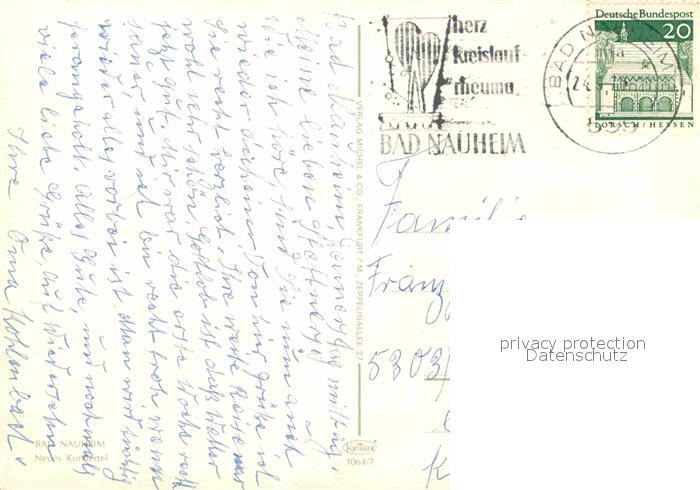 herz
kreislauf-
rheuma
BAD NAUHEIM
Deutsche Bundespost
20
LORSCH/HESSEN
BAD NAUHEIM
VERLAG MICHEL & CO., FRANKFURT / M., ZEPPELINALLEE 27
Bad Nauheim, Donnerstag mittag,
Meine lieben
wie ich höre, sind Sie nun auch
wieder daheim. Von hier grüße ich
Sie recht herzlich. Ihre Reise war
wohl sehr schön. Gottlob ist das Wetter
jetzt gut. Mir war die erste Woche recht
und ich bin recht froh wenn
wieder alles vorbei ist. Man wird tüchtig
Alles Gute, und nochmals
viele liebe Grüße, auf Wiedersehn
Ihre Oma
Familie
Franz
5303
BAD NAUHEIM
Neues Kurviertel
KRÜGER
1064/7
privacy protection
Datenschutz